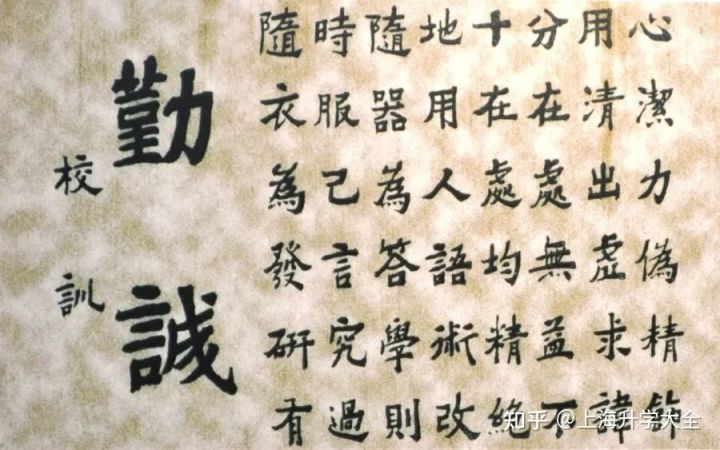 校訓
勤誠
隨時隨地十分用心
衣服器用在在清潔
為己為人處處出力
發言答語均無虛偽
研究學術精益求精
有過則改絶不諱飾
知乎 @上海升学大全